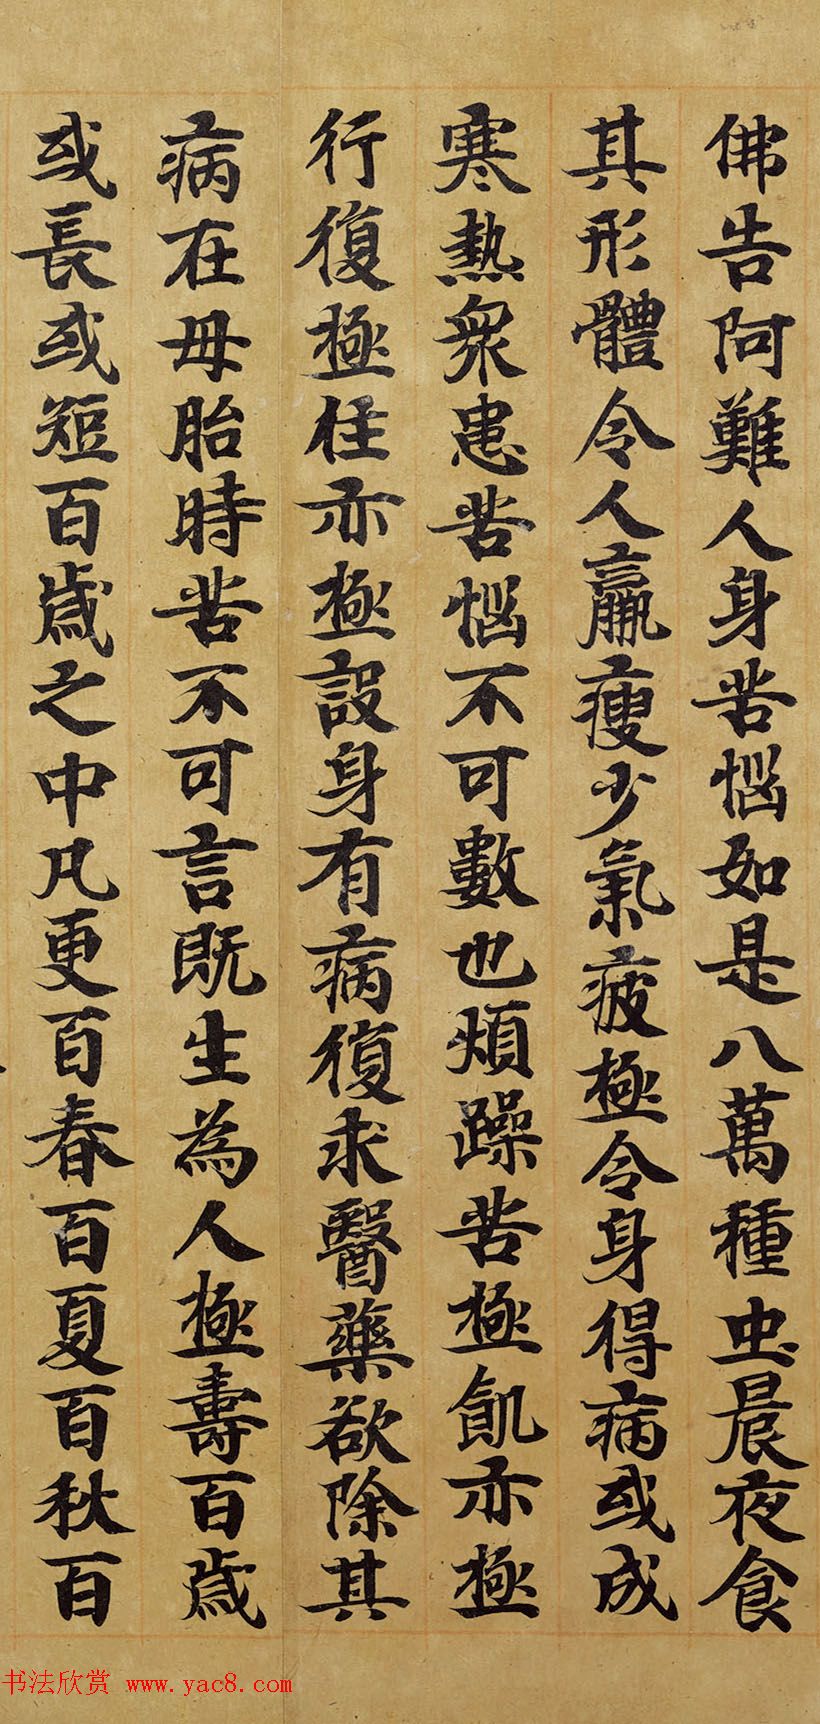 佛告阿難人身苦惱如是八萬種虫晨夜食
其形體令人羸瘦少氣疲極令身得病或成
寒熱衆患苦惱不可數也煩躁苦極飢亦極
行復極住亦極設身有病復求醫藥欲除其
病在母胎時苦不可言既生為人極壽百歲
或長或短百歲之中凡更百春百夏百秋百
书法欣赏 www.yac8.com